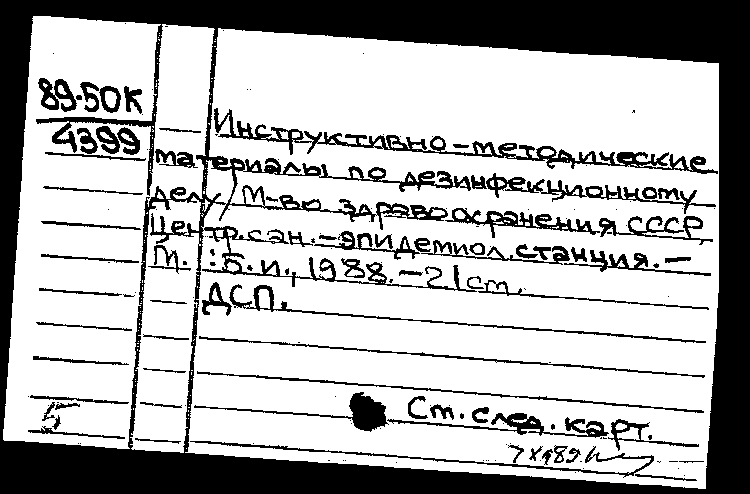 89-50К
4399
Инструктивно-методические
материалы по дезинфекционному
делу/М-во здравоохранения СССР,
Центр.сан.-эпидемиол.станция.-
М. :Б.и.,1988.-21ст.
ДСП.
Ст.след.карт.
5